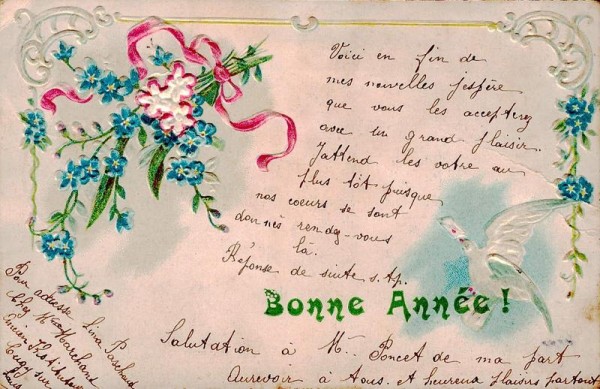 Voici en fin de
mes nouvelles j'espère
que vous les accepterez
avec un grand plaisir.
J'attend les votre au
plus tôt puisque
nos coeurs se sont
donnés rendez-vous
là.
Réponse de suite s.t.p.
Bonne Année!
Salutation à M. Poncet de ma part
Aurevoir à tous. et heureux plaisirs partout
Pour adresse Lina Paschoud
chez Mme Marchand
Ancien Instituteur
Cugy sur